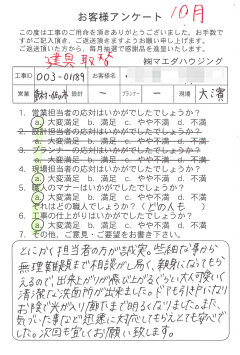 お客様アンケート 10月
この度は工事のご用命を頂きありがとうございました。お手数で
すがご記入頂き、ご送付頂きますようお願い申し上げます。
ご返送頂いた方から、毎月抽選で感謝品を進呈いたします。
建具取替 ㈱マエダハウジング
工事ID 003-01189 お客様名
営業 設計 ー プランナー ー 現場 大濱
1. 営業担当者の対応はいかがでしたでしょうか?
a. 大変満足 b. 満足 c. やや不満 d. 不満
2. 設計担当者の対応はいかがでしたでしょうか?
a. 大変満足 b. 満足 c. やや不満 d. 不満
3. プランナーの対応はいかがでしたでしょうか?
a. 大変満足 b. 満足 c. やや不満 d. 不満
4. 現場担当者の対応はいかがでしたでしょうか?
a. 大変満足 b. 満足 c. やや不満 d. 不満
5. 職人のマナーはいかがでしたでしょうか?
a. 大変満足 b. 満足 c. やや不満 d. 不満
それはどの職人でしょうか? (どの人も)
6. 工事の仕上がりはいかがでしたでしょうか?
a. 大変満足 b. 満足 c. やや不満 d. 不満
7. その他、ご意見・ご要望をお書き下さい。
とにかく担当者の方が誠実。些細な事から
無理難題まで相談がし易く、親身になってもら
えるので、出来上がりが
清潔な洗面所が出来ました。ドアも引き戸になり
お陰で光が入り廊下まで明るくなりました。また、
気づいた事など迅速に対応してもらえとても安心で
した。次回も宜しくお願い致します。